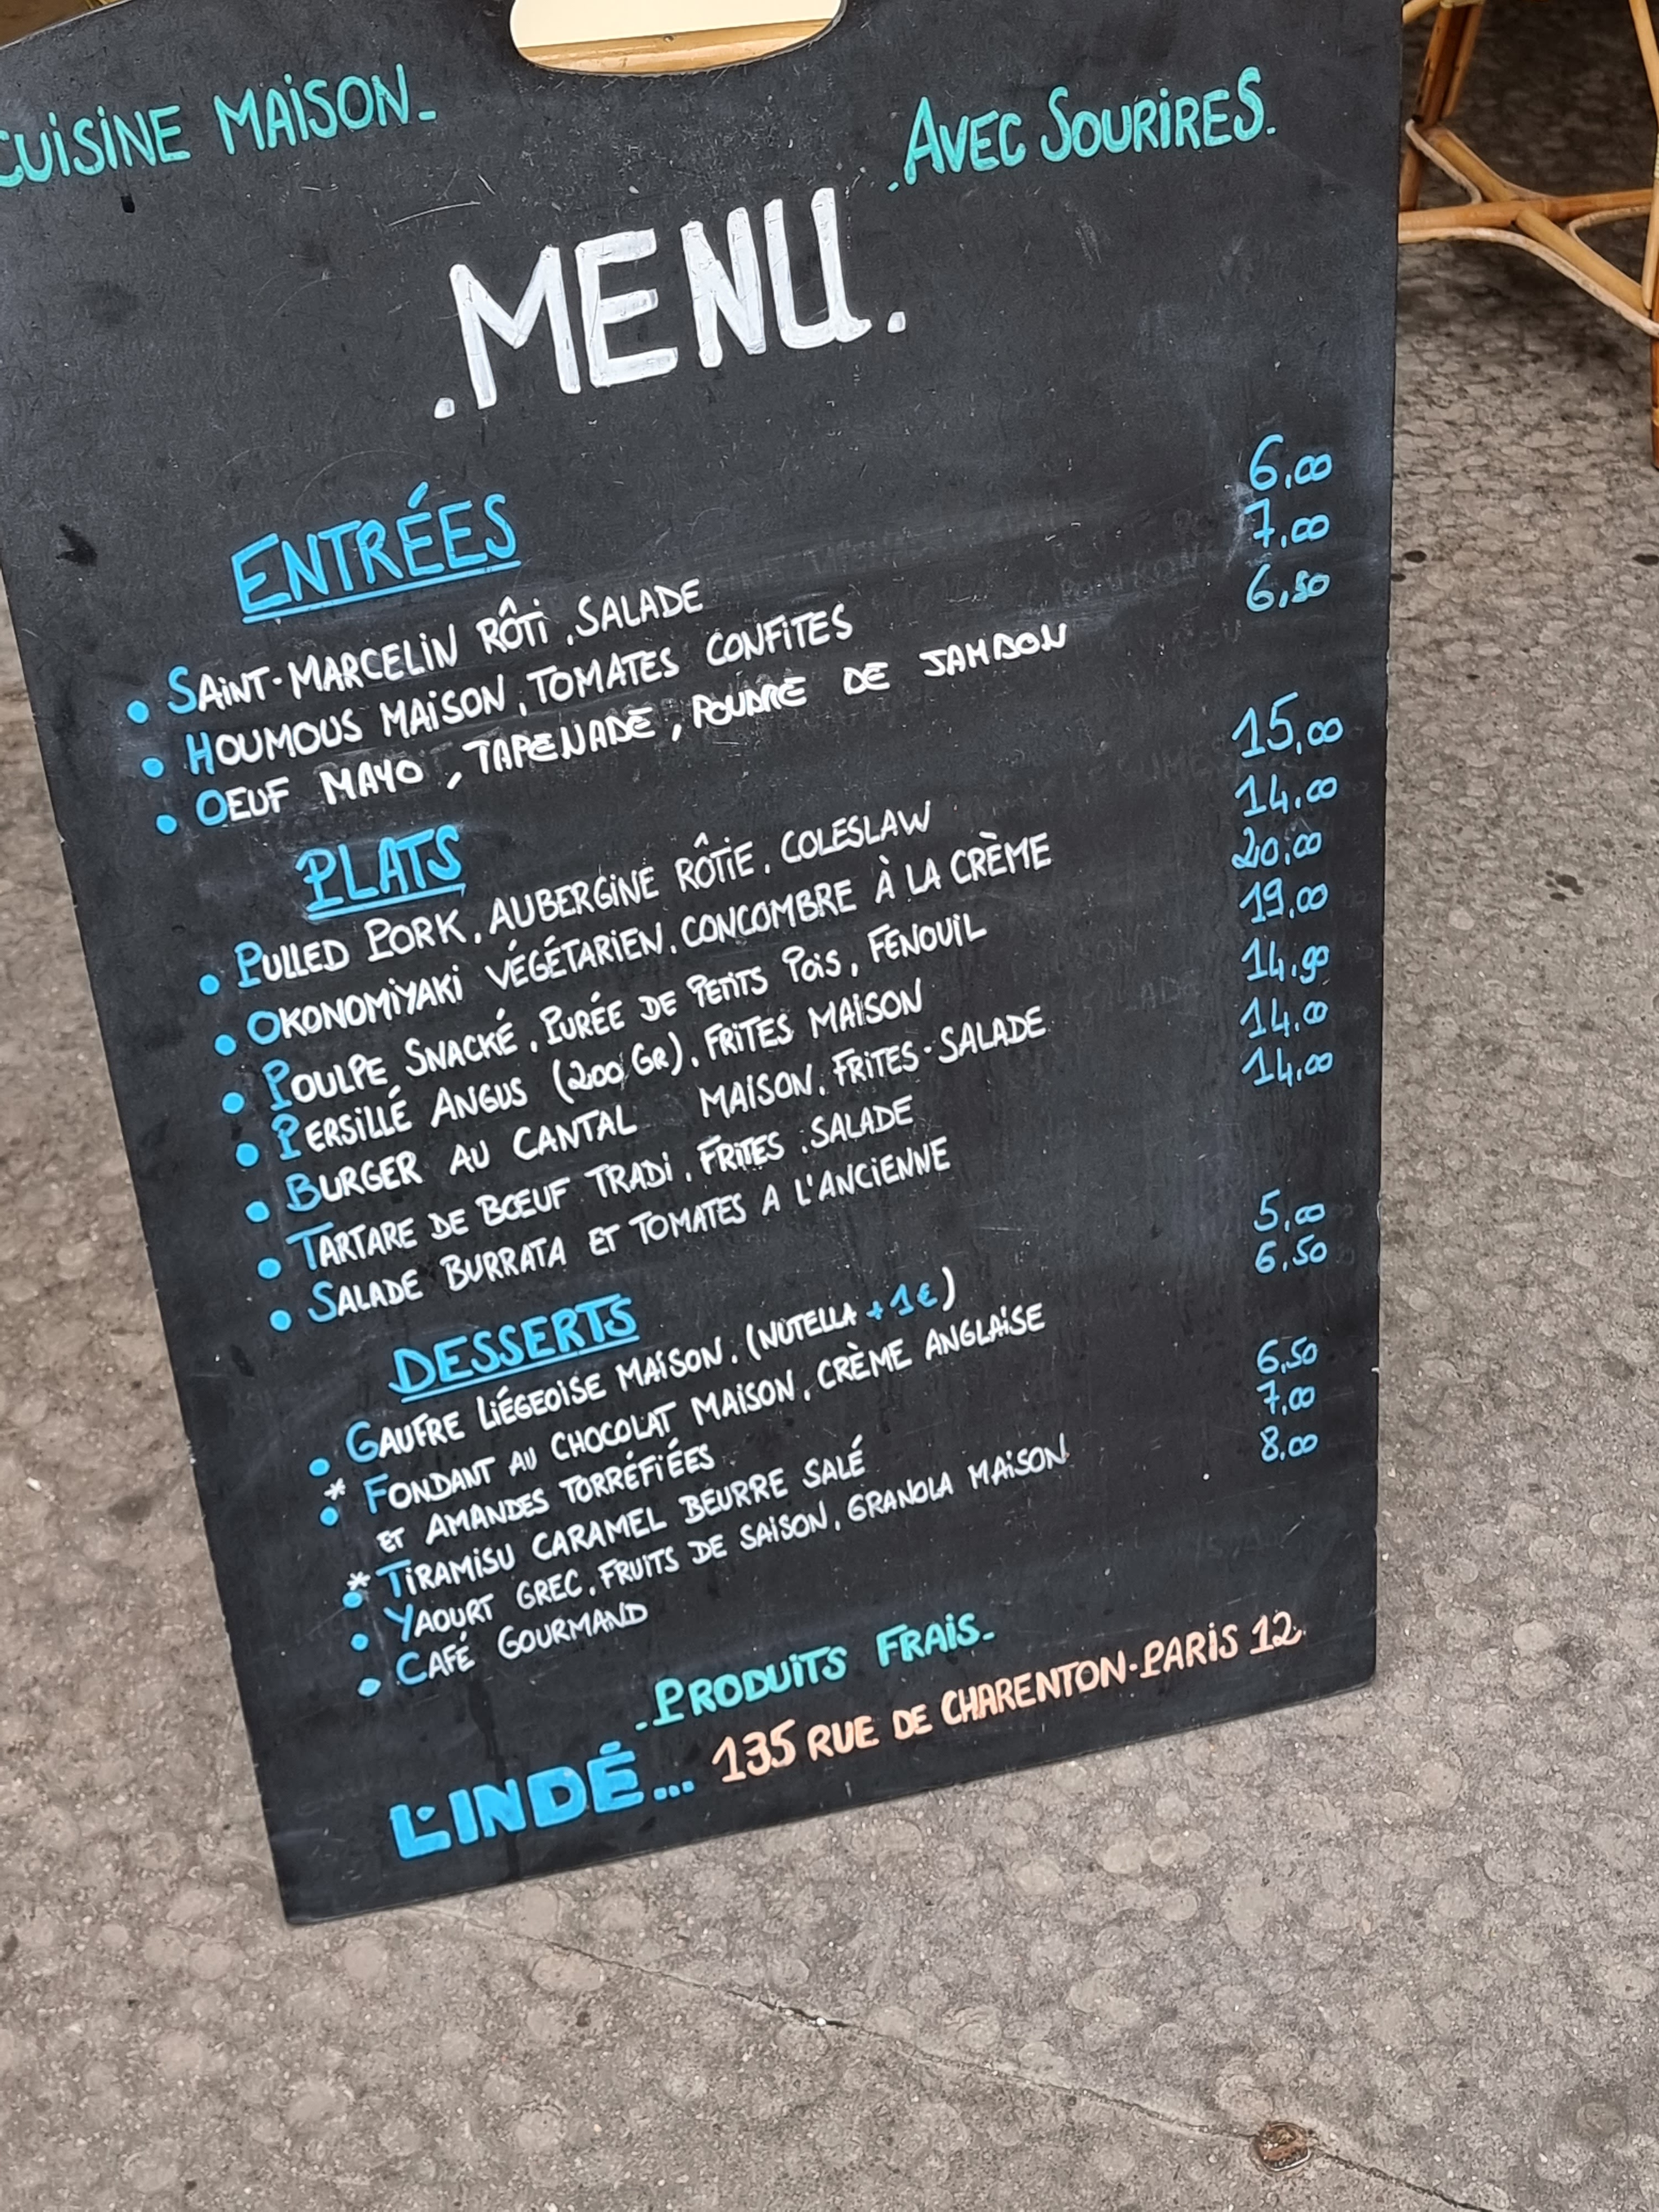 CUISINE MAISON-
.AVEC SOURIRES.
.MENU.
ENTRÉES
• SAINT-MARCELIN RÔTI, SALADE 6,00
• HOUMOUS MAISON, TOMATES CONFITES 7,00
• OEUF MAYO, TAPENADE, POUDRE DE JAMBON 6,50
PLATS
• PULLED PORK, AUBERGINE RÔTIE, COLESLAW 15,00
• OKONOMIYAKI VÉGÉTARIEN, CONCOMBRE À LA CRÈME 14,00
• POULPE SNACKÉ, PURÉE DE PETITS POIS, FENOUIL 20,00
• PERSILLÉ ANGUS (200 GR), FRITES MAISON 19,00
• BURGER AU CANTAL MAISON, FRITES-SALADE 14,90
• TARTARE DE BŒUF TRADI, FRITES, SALADE 14,00
• SALADE BURRATA ET TOMATES A L'ANCIENNE 14,00
DESSERTS
• GAUFRE LIÉGEOISE MAISON. (NUTELLA +1€) 5,00
* • FONDANT AU CHOCOLAT MAISON, CRÈME ANGLAISE 6,50
ET AMANDES TORRÉFIÉES
* • TIRAMISU CARAMEL BEURRE SALÉ 6,50
• YAOURT GREC, FRUITS DE SAISON, GRANOLA MAISON 7,00
• CAFÉ GOURMAND 8,00
-PRODUITS FRAIS-
L'INDÉ... 135 RUE DE CHARENTON-PARIS 12